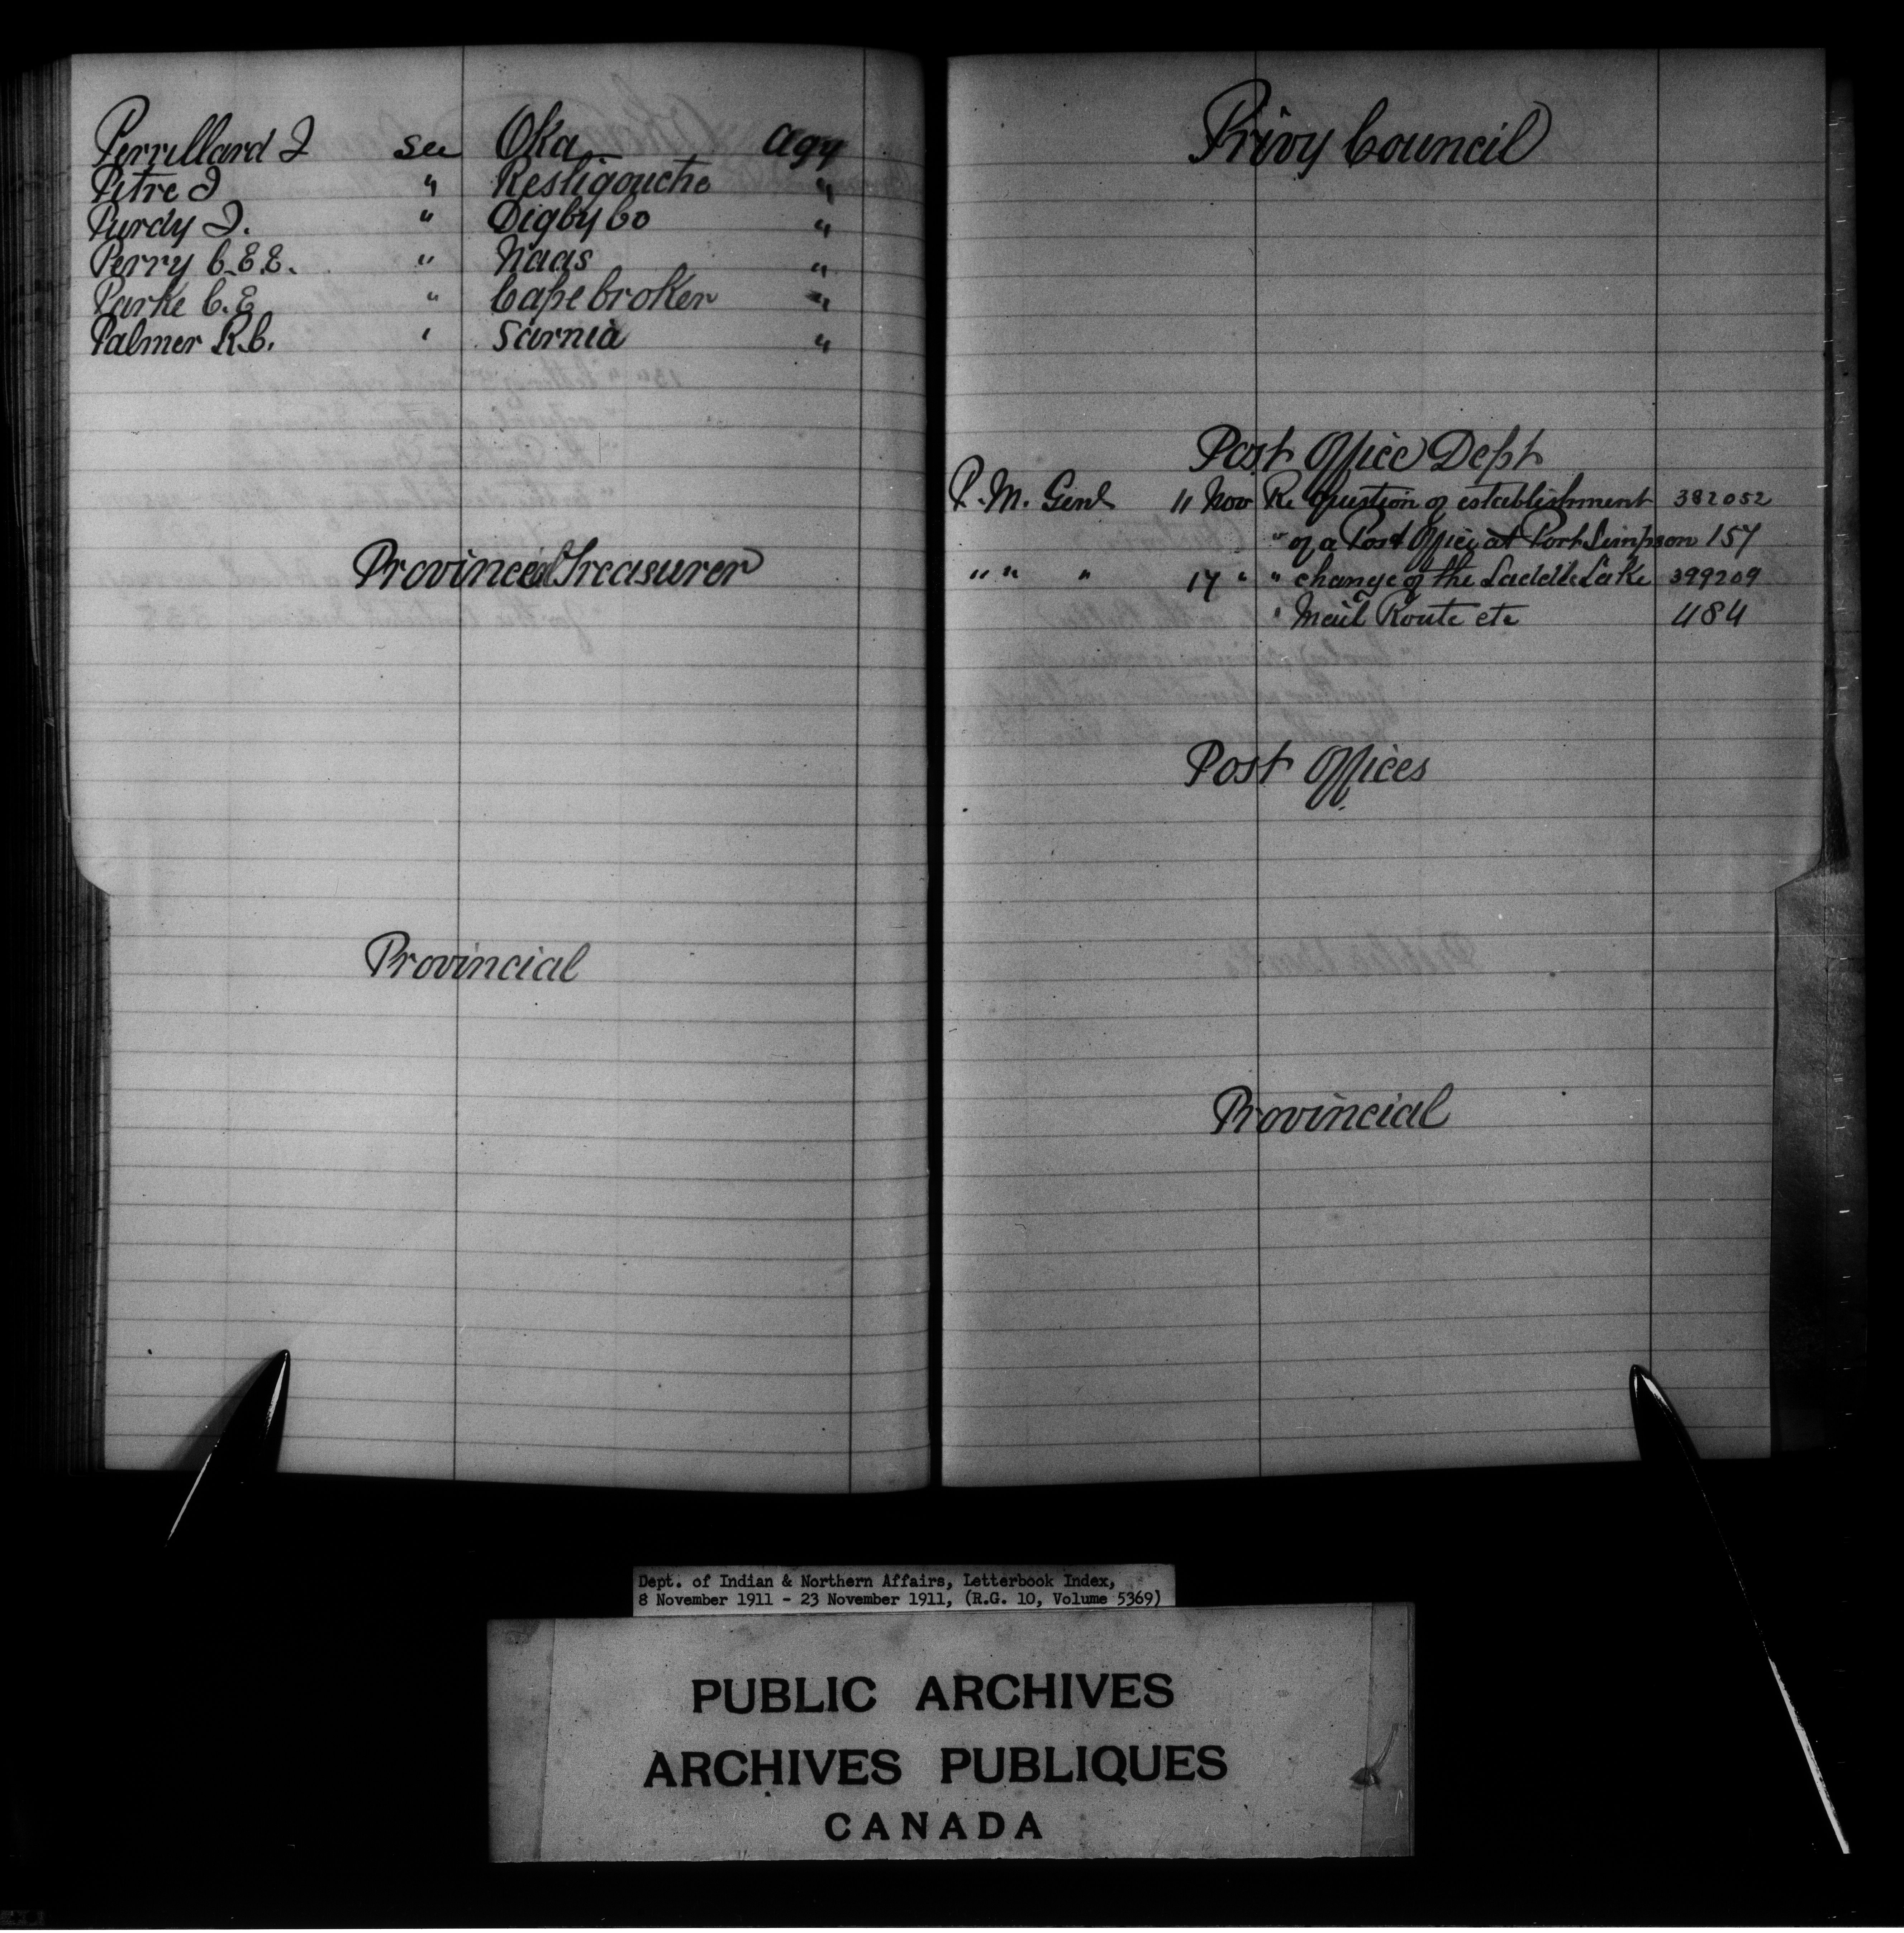 Perrillard J see Oka Agy
Pitre J " Restigouche "
Purdy J. " Digby Co "
Perry C.E.E. " Naas "
Parke C.E " Cape Croker "
Palmer R.C. " Sarnia "
Provincial Treasurer
Provincial
Privy Council
Post Office Dept
P.M. Genl 11 Nov Re Question of establishment 382052
" of a Post Office at Port Simpson 157
" " " 17 " " change of the Saddle Lake 399209
" Mail Route etc 484
Post Offices
Provincial
Dept. of Indian & Northern Affairs, Letterbook Index,
8 November 1911 - 23 November 1911, (R.G. 10, Volume 5369)
PUBLIC ARCHIVES
ARCHIVES PUBLIQUES
CANADA